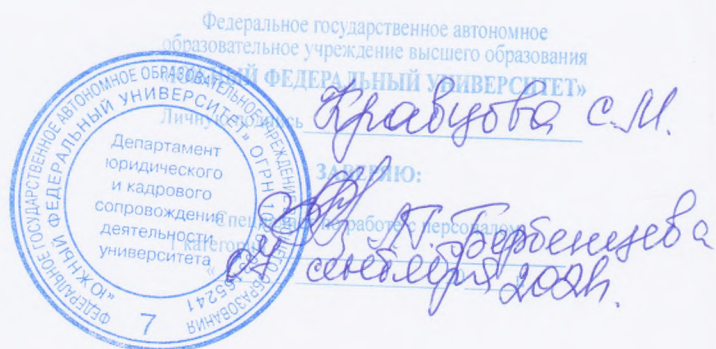 Федеральное государственное автономное
образовательное учреждение высшего образования
«ЮЖНЫЙ ФЕДЕРАЛЬНЫЙ УНИВЕРСИТЕТ»
Личную подпись Кравцова С.М.
ЗАВЕРЯЮ:
Специалист по работе с персоналом
I категории
сентября
ФЕДЕРАЛЬНОЕ ГОСУДАРСТВЕННОЕ АВТОНОМНОЕ ОБРАЗОВАТЕЛЬНОЕ УЧРЕЖДЕНИЕ ВЫСШЕГО ОБРАЗОВАНИЯ
«ЮЖНЫЙ ФЕДЕРАЛЬНЫЙ УНИВЕРСИТЕТ» ОГРН
Департамент
юридического
и кадрового
сопровождения
деятельности
университета
7